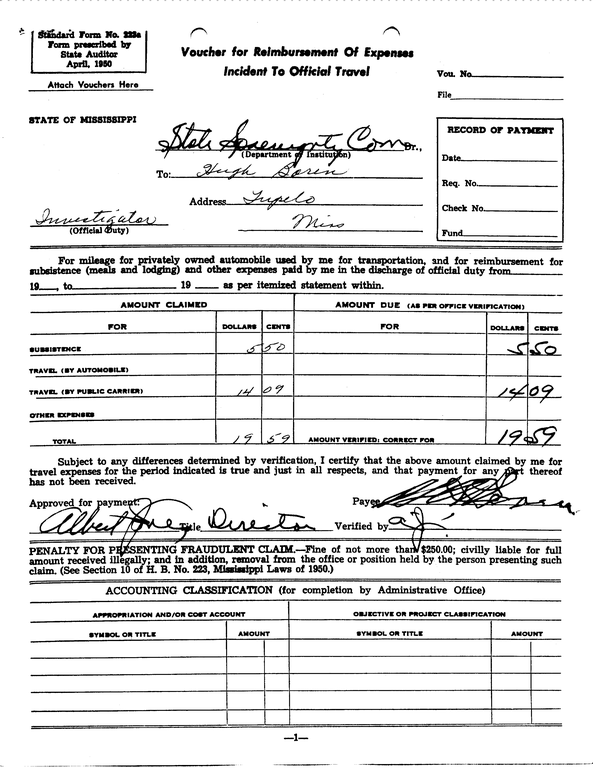 Standard Form No. 223a
Form prescribed by
State Auditor
April, 1950
Attach Vouchers Here
Voucher for Reimbursement Of Expenses
Incident To Official Travel
Vou. No.
File
STATE OF MISSISSIPPI
State Sovereignty Com Dr.,
(Department or Institution)
To: Hugh Boren
Address Tupelo
Miss
Investigator
(Official Duty)
RECORD OF PAYMENT
Date
Req. No.
Check No.
Fund
For mileage for privately owned automobile used by me for transportation, and for reimbursement for
subsistence (meals and lodging) and other expenses paid by me in the discharge of official duty from
19 , to 19 as per itemized statement within.
AMOUNT CLAIMED AMOUNT DUE (AS PER OFFICE VERIFICATION)
FOR DOLLARS CENTS FOR DOLLARS CENTS
SUBSISTENCE 5 50 5 50
TRAVEL (BY AUTOMOBILE)
TRAVEL (BY PUBLIC CARRIER) 14 09 14 09
OTHER EXPENSES
TOTAL 19 59 AMOUNT VERIFIED; CORRECT FOR 19 59
Subject to any differences determined by verification, I certify that the above amount claimed by me for
travel expenses for the period indicated is true and just in all respects, and that payment for any part thereof
has not been received.
Approved for payment: Payee
Albert Jones Title Director Verified by aj
PENALTY FOR PRESENTING FRAUDULENT CLAIM.—Fine of not more than $250.00; civilly liable for full
amount received illegally; and in addition, removal from the office or position held by the person presenting such
claim. (See Section 10 of H. B. No. 223, Mississippi Laws of 1950.)
ACCOUNTING CLASSIFICATION (for completion by Administrative Office)
APPROPRIATION AND/OR COST ACCOUNT OBJECTIVE OR PROJECT CLASSIFICATION
SYMBOL OR TITLE AMOUNT SYMBOL OR TITLE AMOUNT
—1—